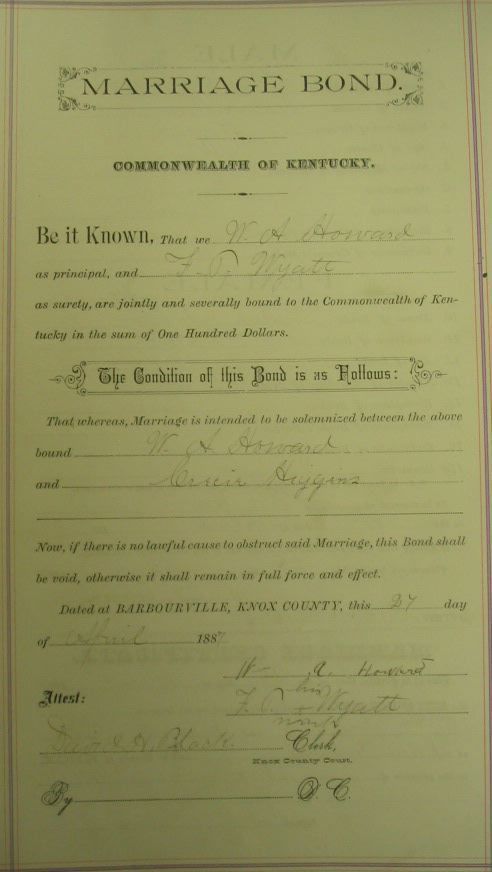 MARRIAGE BOND.
COMMONWEALTH OF KENTUCKY.
Be it Known, That we W. A Howard
as principal, and F. P. Wyatt
as surety, are jointly and severally bound to the Commonwealth of Ken-
tucky in the sum of One Hundred Dollars.
The Condition of this Bond is as Follows:
That whereas, Marriage is intended to be solemnized between the above
bound W. A. Howard
and Higgins
Now, if there is no lawful cause to obstruct said Marriage, this Bond shall
be void, otherwise it shall remain in full force and effect.
Dated at BARBOURVILLE, KNOX COUNTY, this 27 day
of April 1887
W A. Howard
his
Attest: F. P. + Wyatt
mark
Black. Clerk,
Knox County Court.
By D. C.